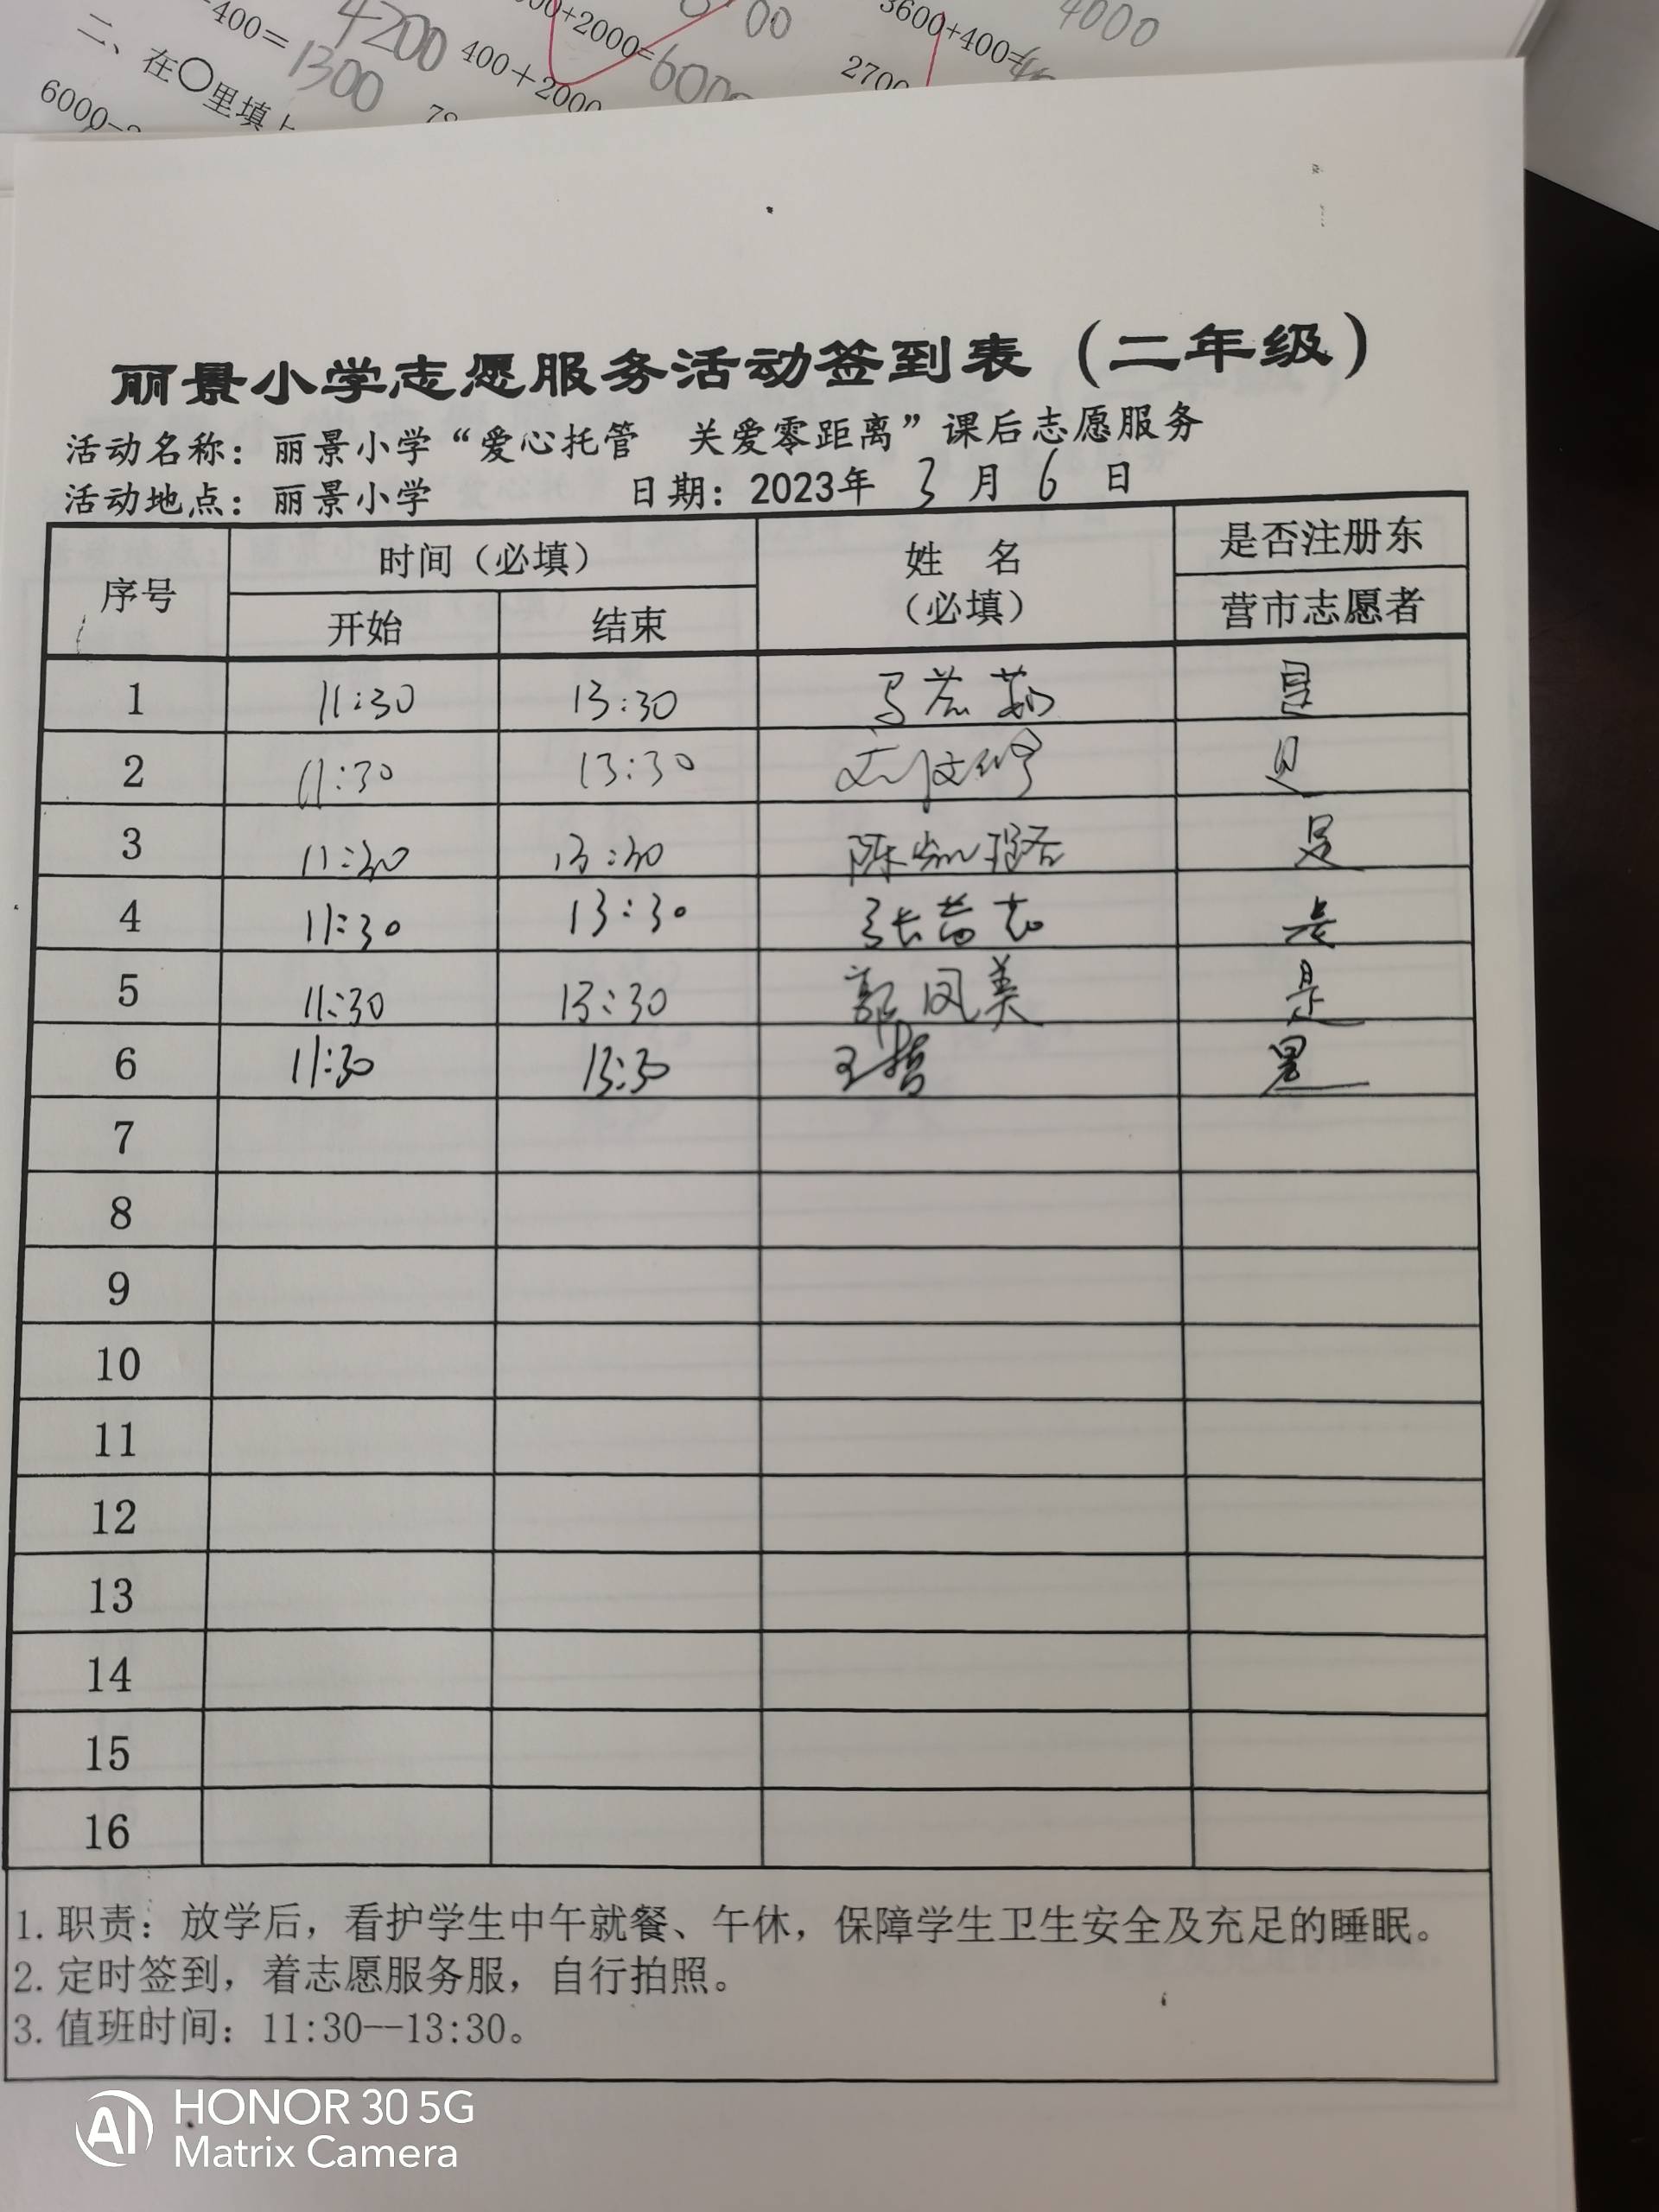 400= 4200
00+2000= 6000
3600+400=
4000
二、在○里填上
1300
400+2000
2700
6000-
丽景小学志愿服务活动签到表（二年级）
活动名称：丽景小学“爱心托管 关爱零距离”课后志愿服务
活动地点：丽景小学 日期：2023年 3 月 6 日
序号 时间（必填） 姓 名 是否注册东
开始 结束 （必填） 营市志愿者
1 11:30 13:30 是
2 11:30 13:30 是
3 11:30 13:30 是
4 11:30 13:30 是
5 11:30 13:30 郭凤美 是
6 11:30 13:30 是
7
8
9
10
11
12
13
14
15
16
1.职责：放学后，看护学生中午就餐、午休，保障学生卫生安全及充足的睡眠。
2.定时签到，着志愿服务服，自行拍照。
3.值班时间：11:30--13:30。
AI HONOR 30 5G
Matrix Camera